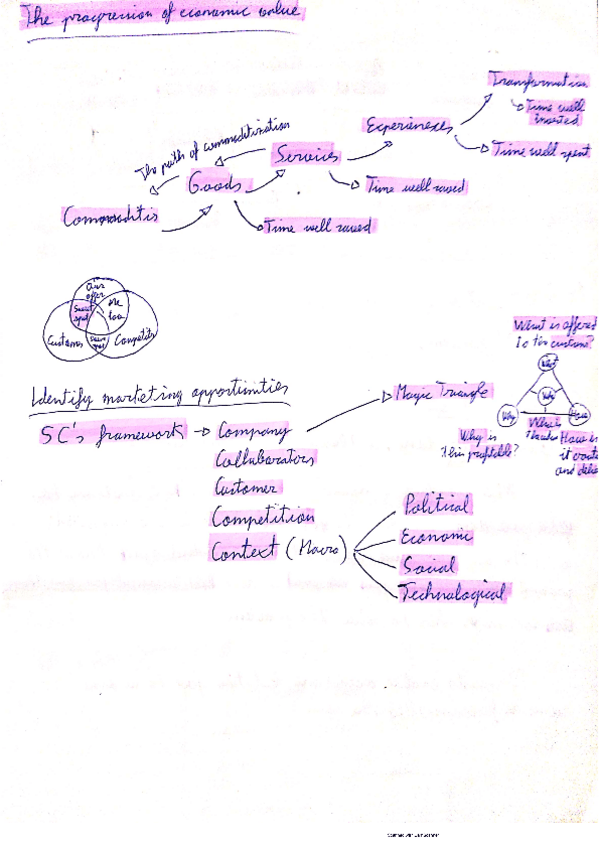 The progression of economic value
Transformation
Time well
invested
Experiences
Time well spent
The path of commoditization
Services
Goods
Time well saved
Commoditis
Time well saved
Our
offer
Sweet
spot
Me
too
Customer
Competitis
What is offered
to the customer?
What
Identify marketing opportunities
Magic Triangle
Why
How
5C's framework → Company
Why is
it profitable?
How is
it creat
and deliv
Collaborators
Customer
Competition
Context (Macro)
Political
Economic
Social
Technological
Scanned with CamScanner